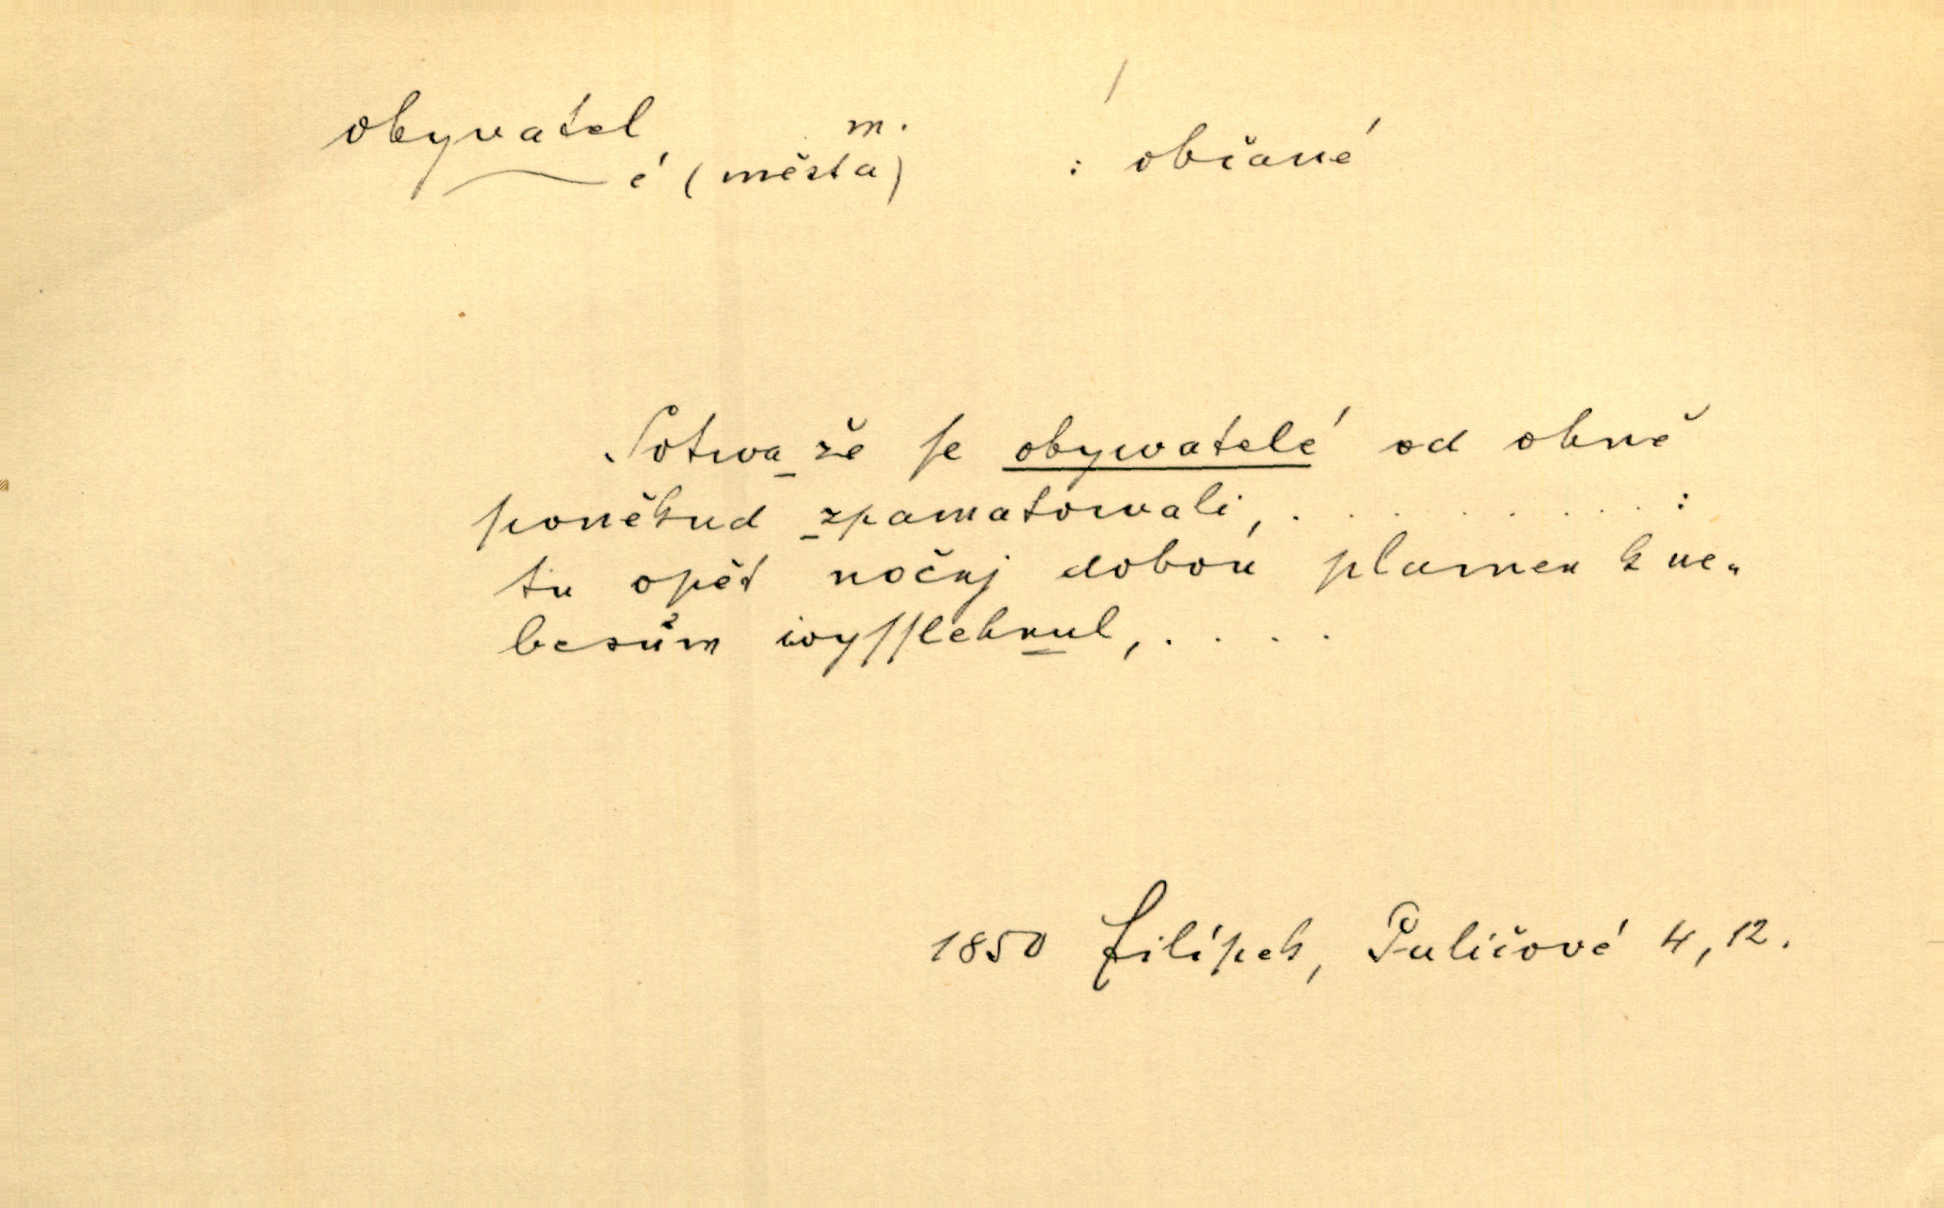 obyvatel m.
é (města) : občané
Sotwa že se obywatelé od ohně
poněkud zpamatowali, . . . . . . . . . :
tu opět nočnj dobou plamen k ne-
besům wyſſlehnul, . . . .
1850 Filípek, Puličové 4, 12.